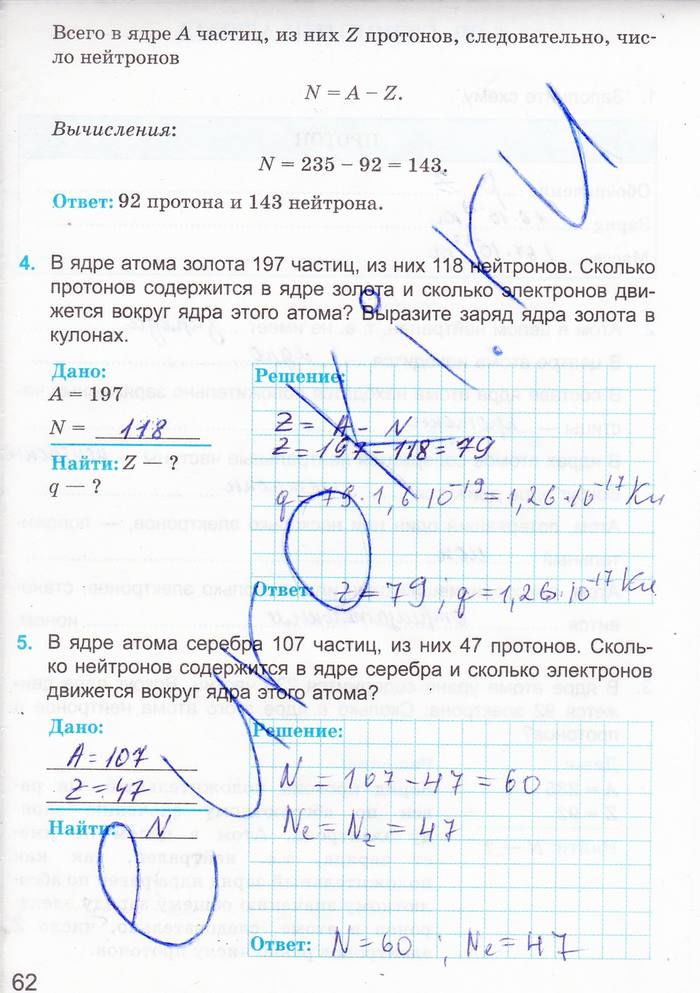 Всего в ядре A частиц, из них Z протонов, следовательно, чис-
ло нейтронов
N = A – Z.
Вычисления:
N = 235 – 92 = 143.
Ответ: 92 протона и 143 нейтрона.
4. В ядре атома золота 197 частиц, из них 118 нейтронов. Сколько
протонов содержится в ядре золота и сколько электронов дви-
жется вокруг ядра этого атома? Выразите заряд ядра золота в
кулонах.
Дано:
A = 197
N = 118
Найти: Z — ?
q — ?
Решение:
Z = A - N
Z = 197 - 118 = 79
q = 79 · 1,6 10⁻¹⁹ = 1,26 · 10⁻¹⁷ Кл
Ответ: Z = 79 ; q = 1,26 · 10⁻¹⁷ Кл
5. В ядре атома серебра 107 частиц, из них 47 протонов. Сколь-
ко нейтронов содержится в ядре серебра и сколько электронов
движется вокруг ядра этого атома?
Дано:
A = 107
Z = 47
Найти: N
Решение:
N = 107 - 47 = 60
Ne = Nz = 47
Ответ: N = 60 ; Ne = 47
62